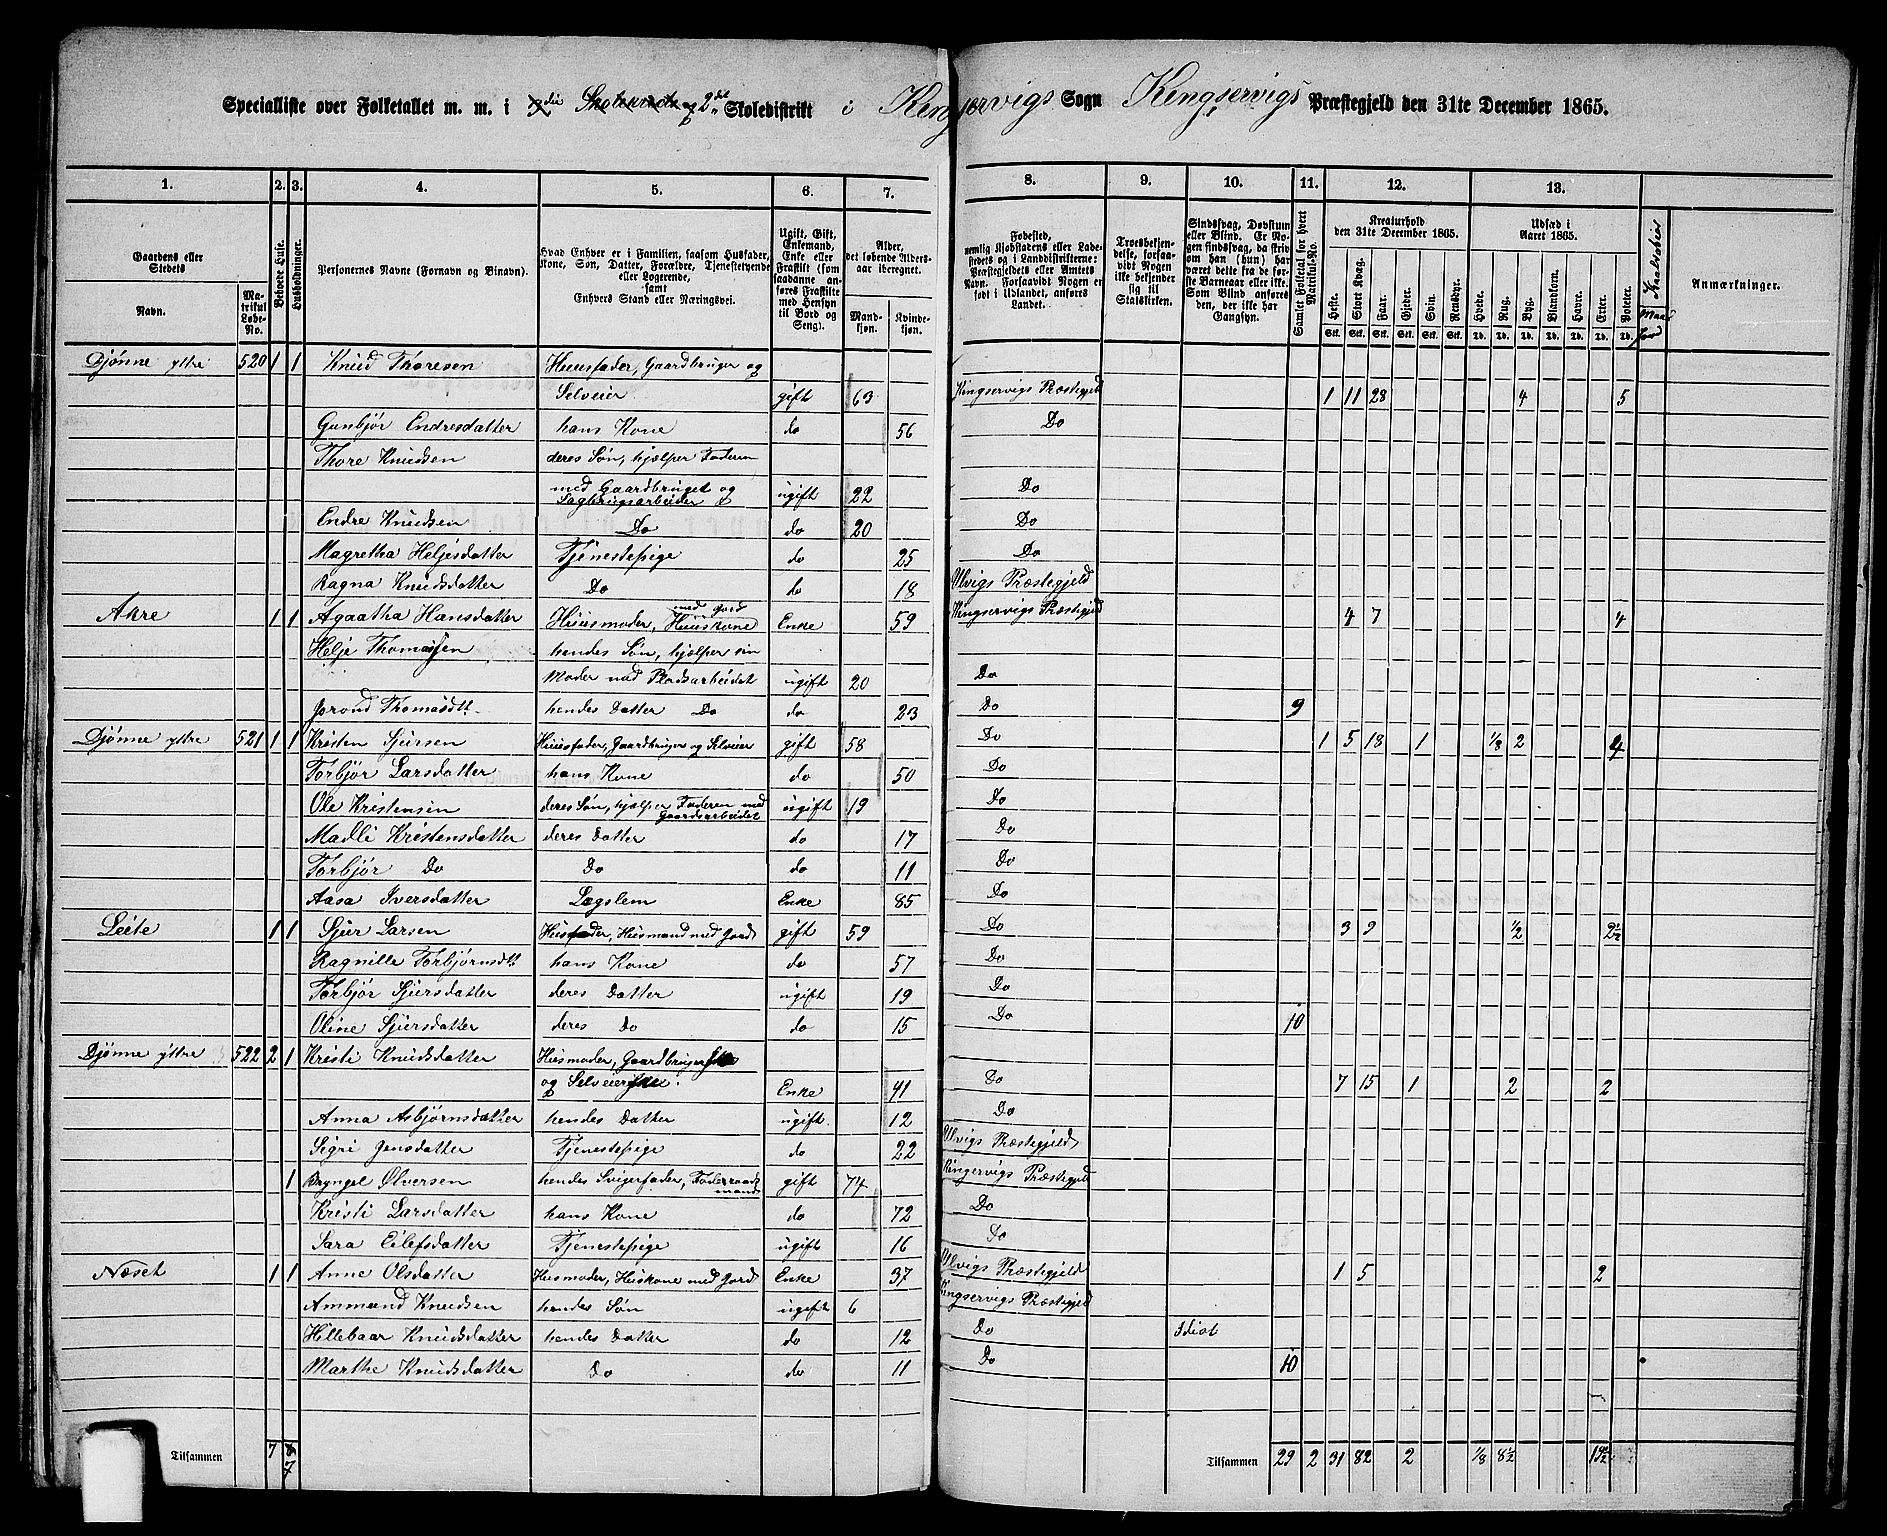 Specialliste over Folketallet m. m. i 2det Skoledistrikt i Kingservigs Sogn Kingservigs Præstegjeld den 31te December 1865.
1. 2. 3. 4. 5. 6. 7. 8. 9. 10. 11. 12. 13.
Gaardens eller Stedets Navn. Matrikul Løbe-No. Beboede Huse. Husholdninger. Personernes Navne (Fornavn og Binavn). Hvad Enhver er i Familien, saasom Husfader, Kone, Søn, Datter, Forældre, Tjenestetyende eller Logerende, samt Enhvers Stand eller Næringsvei. Ugift, Gift, Enkemand, Enke eller Fraskilt (som saadanne anføres Fraskilte med Hensyn til Bord og Seng). Alder, det løbende Aldersaar iberegnet. Mandkjøn. Kvindekjøn. Fødested, nemlig Kjøbstadens eller Ladestedets og i Landdistrikterne: Præstegjeldets eller Amtets Navn. Forsaavidt Nogen er født i Udlandet, anføres Landet. Troesbekjendelse, forsaavidt Nogen ikke bekjender sig til Statskirken. Sindssvag, Døvstum eller Blind. Er Nogen sindssvag, da skrives om han (hun) har været dette fra de første Barneaar eller ikke. Som Blind anføres den, der ikke har Gangsyn. Samlet Folketal for hvert Matrikul-No. Kreaturhold den 31te December 1865. Heste. Stort Kvæg. Faar. Gjeder. Svin. Rensdyr. Udsæd i Aaret 1865. Hvede. Rug. Byg. Blandkorn. Havre. Erter. Poteter. Anmærkninger.
Djønne ytre 520 1 1 Knud Thoresen Huusfader, Gaardbruger og
Selveier gift 63 Kingservigs Præstegjeld 1 11 28 4 5
Gunbjør Endresdatter hans Kone do 56 Do
Thore Knudsen deres Søn, hjælper Faderen
med Gaardbruget og Sagbrugsarbeider ugift 22 Do
Endre Knudsen Do do 20 Do
Magretha Heljesdatter Tjenestepige do 25 Do
Ragna Knudsdatter Do do 18 Ulvigs Præstegjeld
Akre 1 1 Agaatha Hansdatter Huusmoder, Huuskone med Jord Enke 59 Kingservigs Præstegjeld 4 7 4
Helje Thomassen hendes Søn, hjælper sin
Moder med Pladsarbeidet ugift 20 Do
Jorond Thomasdtt. hendes Datter Do do 23 Do 9
Djønne ytre 521 1 1 Kristen Sjursen Huusfader, Gaardbruger og Selveier gift 58 Do 1 5 18 1 1/8 2 4
Torbjør Larsdatter hans Kone do 50 Do
Ole Kristensen deres Søn, hjælper Faderen med Gaardsarbeidet ugift 19 Do
Madli Kristensdatter deres Datter do 17 Do
Torbjør Do Do do 11 Do
Aasa Iversdatter Lægslem Enke 85 Do
Leite 1 1 Sjur Larsen Husfader, Husmand med Jord gift 59 Do 3 9 1/2 2 1/2
Ragnille Torbjørnsdtt hans Kone do 57 Do
Torbjør Sjursdatter deres Datter ugift 19 Do
Oline Sjursdatter deres Do do 15 Do 10
Djønne ytre 522 2 1 Kristi Knudsdatter Husmoder, Gaardbrugerske
og Selveierske. Enke 41 Do 7 15 1 2 2
Anna Asbjørnsdatter hendes Datter ugift. 12 Do
Sigri Jensdatter Tjenestepige do 22 Ulvigs Præstegjeld
1 Bryngel Ølversen hendes Svigerfader, Føderaadsmand gift 74 Kingservigs Præstegjeld
Kristi Larsdatter hans Kone do 72 Do
Sara Eilefsdatter Tjenestepige ugift 16 Do
Næset 1 1 Anne Olsdatter Husmoder, Huskone med Jord Enke 37 Ulvigs Præstegjeld 1 5 2
Ammund Knudsen hendes Søn ugift 6 Kingservigs Præstegjeld
Hillebaar Knudsdatter hendes Datter do 12 Do Idiot
Marthe Knudsdatter Do do 11 Do 10
Tilsammen 7 7 Tilsammen 29 2 31 82 2 1/8 8 1/2 19 1/2